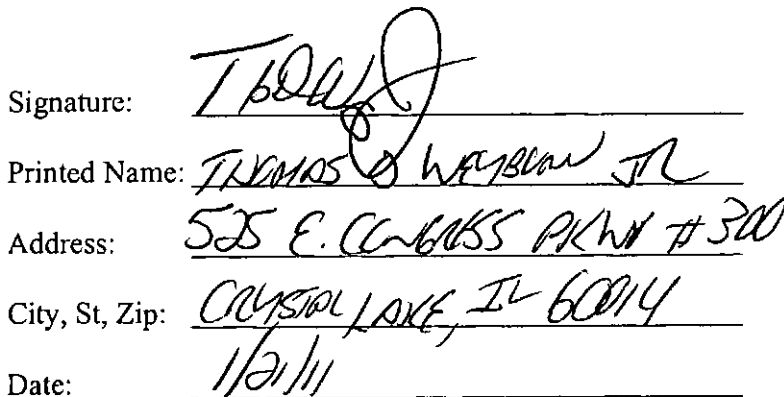 Signature:
Printed Name: THOMAS D WEYBURN JR
Address: 525 E. CONGRESS PKWY # 300
City, St, Zip: CRYSTAL LAKE, IL 60014
Date: 1/21/11